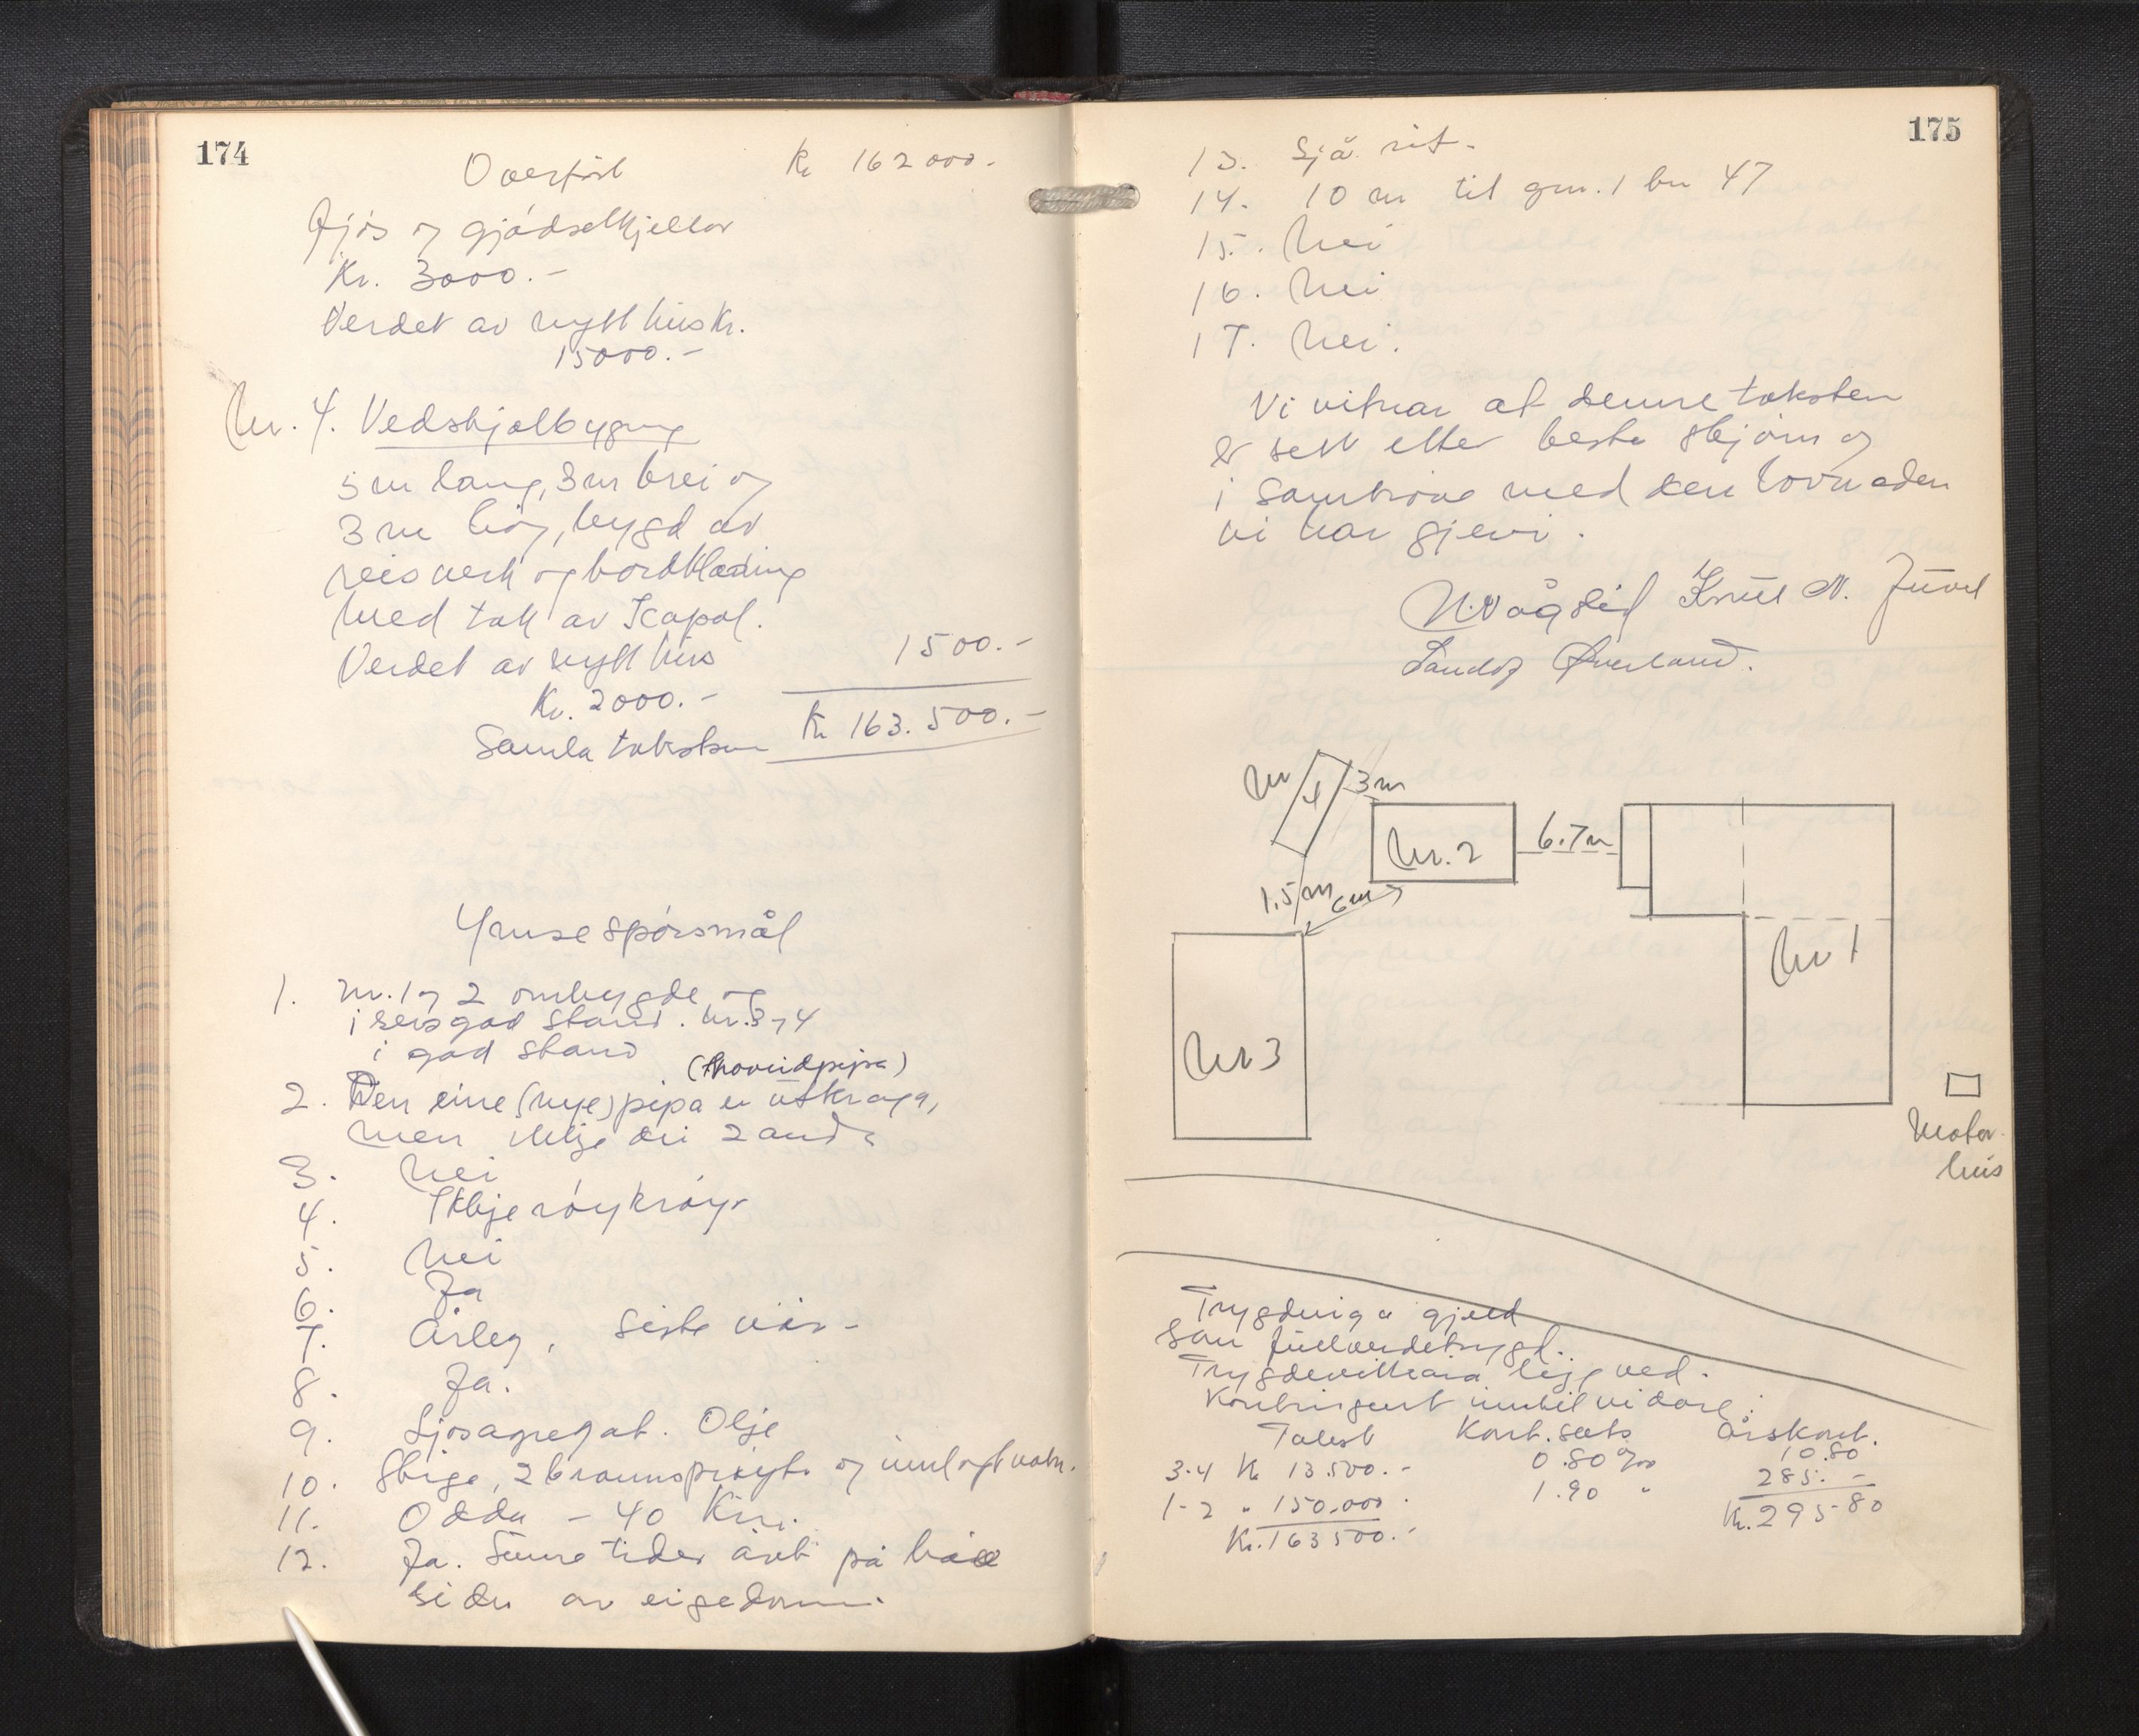 174
Overført Kr 162000.-
Fjøs og gjødselkjellar
Kr. 3000.-
Verdet av nytt hus Kr.
15000.-
Nr. 4. Vedskjolbygning
5 m lang, 3 m brei og
3 m høg, bygd av
reisverk og bordklæding
med tak av
Verdet av nytt hus 1500.-
Kr. 2000.-
Samla taksten Kr 163.500.-
Ymse spørsmål
1. Nr. 1 og 2 ombygde og
i god stand. Nr. 3 og 4
i god stand
(hovudpipa)
2. Den eine (nye) pipa er utkraga,
men ikkje dei 2 andre
3. Nei
4. Ikkje røykrøyr
5. Nei
6. Ja
7. Årleg, siste vår -
8. Ja.
9. Ljosagregat. Olje
10. Stige, 2 brannsprøyte og innlagt vatn.
11. Odda - 40 Km.
12. Ja. Sume tider året på båe
sider av eigedomen.
175
13. Sjå rit.
14. 10 m til gnr. 1 bn 47
15. Nei
16. Nei
17. Nei.
Vi vitnar at denne taksten
er sett etter beste skjøn og
i samhøve med den lovnaden
vi har gjevi.
N. Vågslid Knut N. Juvet
Sandof Øverland.
Nr 4 3 m
Nr. 2 6.7 m
1.5 m 6 m
Nr 1
Nr 3
Motor
hus
Trygdinga gjeld
som fullverdetrygd.
Trygdevilkåra ligg ved.
Kontingent inntil vidare:
Takst Kont.sats Årskont.
3-4 Kr 13.500.- 0.80 ‰ 10.80
1-2 " 150.000.- 1.90 " 285.-
Kr. 163500.- Kr. 295-80